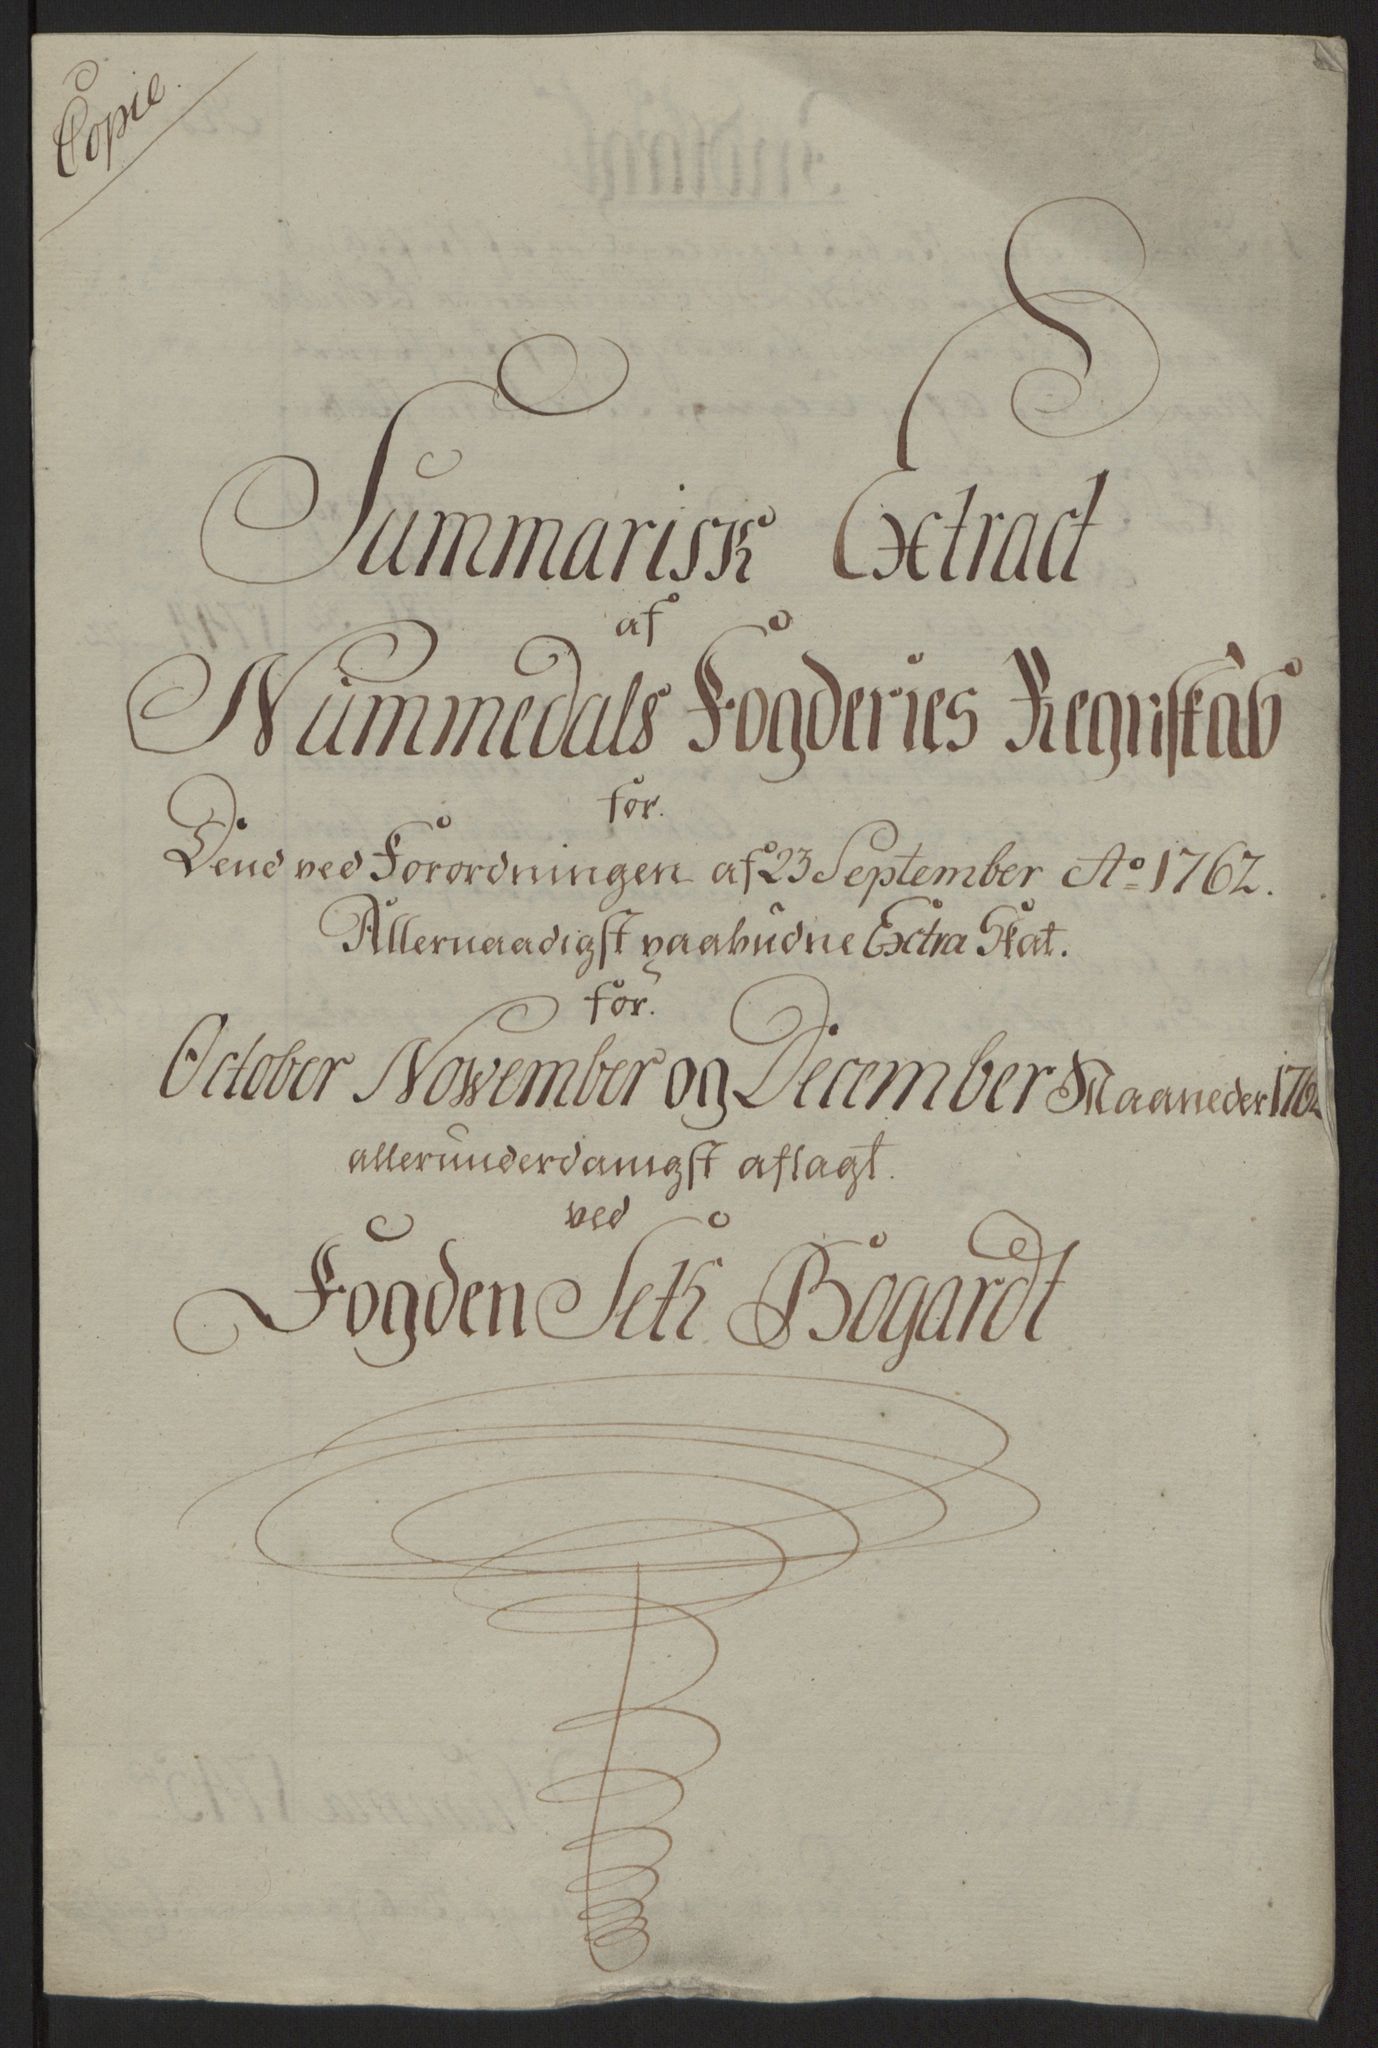 Copie.
Summarisk Extract
af
Nummedals Fogderies Regnskab
for.
Dend ved Forordningen af 23 September Ao 1762.
Allernaadigst paabudne Extra Skat.
for.
October Nowember og December Maaneder 1762
allerunderdanigst aflagt.
ved
Fogden Seth Bogardt